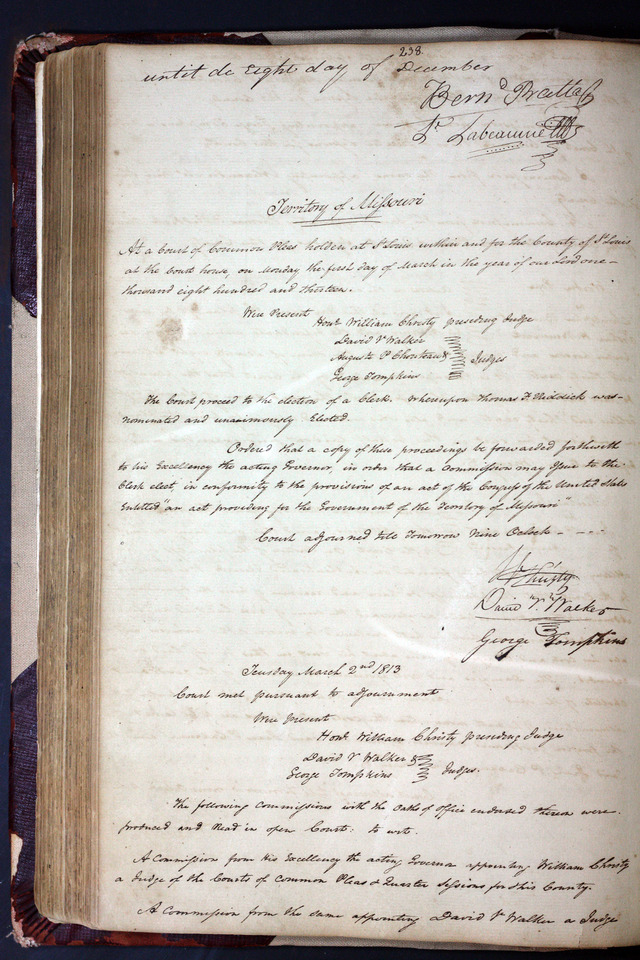 238.
until de Eight day of December
Bernd Pratte
Ls Labeaume
Territory of Missouri
At a Court of Common Pleas holden at St Louis within and for the County of St Louis
at the Court house, on Monday the first day of March in the year of our Lord one-
thousand eight hundred and thirteen.
Were Present
Honl William Christy presiding Judge
David V Walker
Auguste P Chouteau & Judges
George Tompkins
The Court proceed to the election of a Clerk. Whereupon Thomas F Riddick was-
nominated and unanimously Elected.
Ordered that a copy of these proceedings be forwarded forthwith
to his Excellency the acting Governor, in order that a Commission may Issue to the
Clerk elect in conformity to the provisions of an act of the Congress of the United States
Entitled "an act providing for the Government of the Territory of Missouri"
Court adjourned till Tomorrow Nine Oclock - - - -
Wm Christy
David V. Walker
George Tompkins
Tuesday March 2nd 1813
Court met pursuant to adjournment
Were Present
Honl William Christy presiding Judge
David V Walker &
George Tompkins Judges.
The following Commissions with the Oaths of Office endorsed thereon were
produced and Read in open Court: to wit.
A Commission from His Excellency the acting Governor appointing William Christy
a Judge of the Courts of Common Pleas & Quarter Sessions for this County.
A Commission from the same appointing David V Walker a Judge